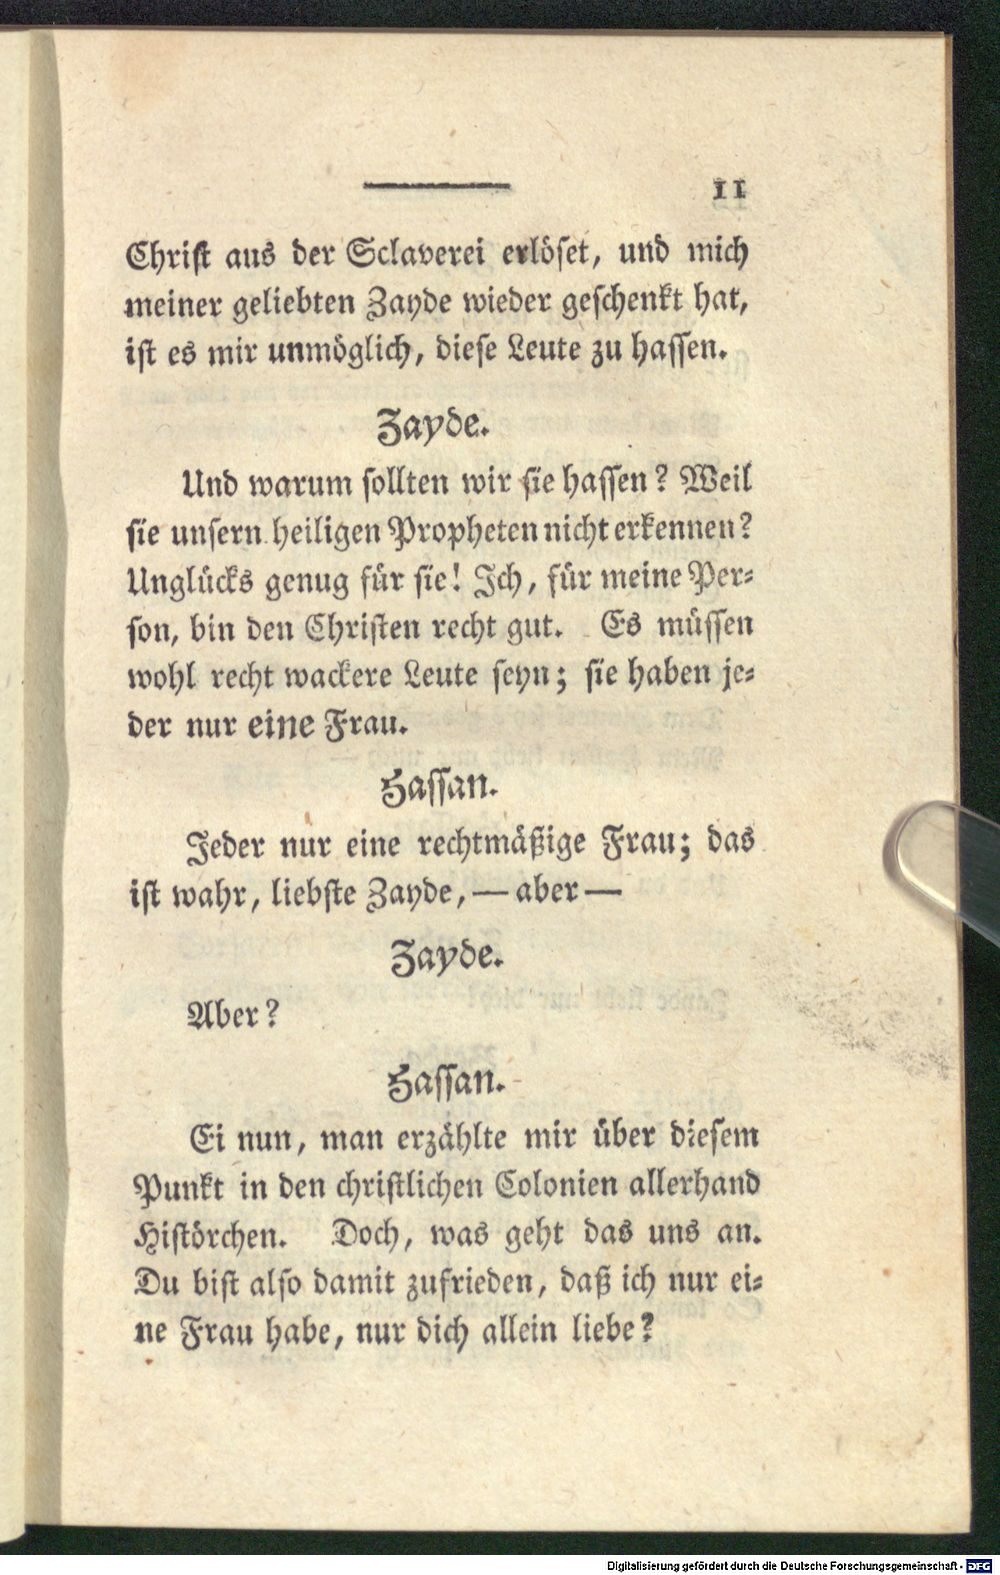 11
Christ aus der Sclaverei erlöset, und mich
meiner geliebten Zayde wieder geschenkt hat,
ist es mir unmöglich, diese Leute zu hassen.
Zayde.
Und warum sollten wir sie hassen? Weil
sie unsern heiligen Propheten nicht erkennen?
Unglücks genug für sie! Ich, für meine Per-
son, bin den Christen recht gut. Es müssen
wohl recht wackere Leute seyn; sie haben je-
der nur eine Frau.
Hassan.
Jeder nur eine rechtmäßige Frau; das
ist wahr, liebste Zayde, — aber —
Zayde.
Aber?
Hassan.
Ei nun, man erzählte mir über diesem
Punkt in den christlichen Colonien allerhand
Histörchen. Doch, was geht das uns an.
Du bist also damit zufrieden, daß ich nur ei-
ne Frau habe, nur dich allein liebe?
Digitalisierung gefördert durch die Deutsche Forschungsgemeinschaft - DFG